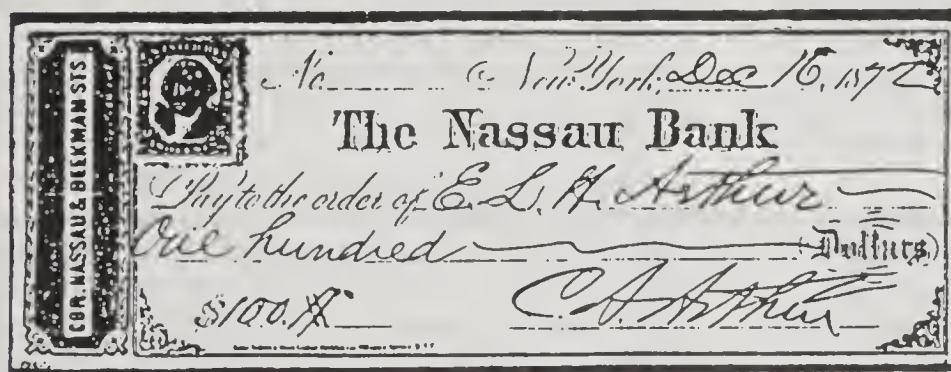 COR. NASSAU & BEEKMAN STS
No. New York, Dec 16, 1872
The Nassau Bank
Pay to the order of E. L. H. Arthur
One hundred (Dollars)
$100.
C. A. Arthur